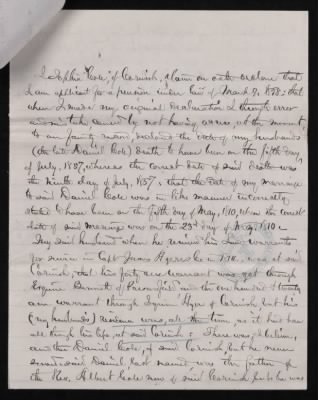 I Sophia Cole, of Cornish, Maine on oath declare that
I am applicant for a pension under law of March 9, 1878: that
when I made my original declaration I through error
caused by not having access, at the moment,
to our family record, declared the date of my husband's
(the late Daniel Cole) death to have been on the fifth day
of July, 1857, whereas the correct date of said death was
the ninth day of July, 1857: that the date of my marriage
to said Daniel Cole was in like manner incorrectly
stated to have been on the fifth day of May, 1810, when the correct
date of said marriage was on the 23d day of May, 1810.
My said husband when he received his land warrants
for service in Capt James Ayers Co in 1814, was at said
Cornish; that his forty acre warrant was got through
Esquire Bennett of Parsonsfield and the one hundred & twenty
acre warrant through Esquire Ayer of Cornish, but his
(my husband's) residence was, all the time, as it had been
all through his life, at said Cornish. There was, I believe,
another Daniel Cole, of said Cornish, but he never
served. said Daniel, last named, was the father of
the Rev. Albert Cole now of said Cornish, but he was